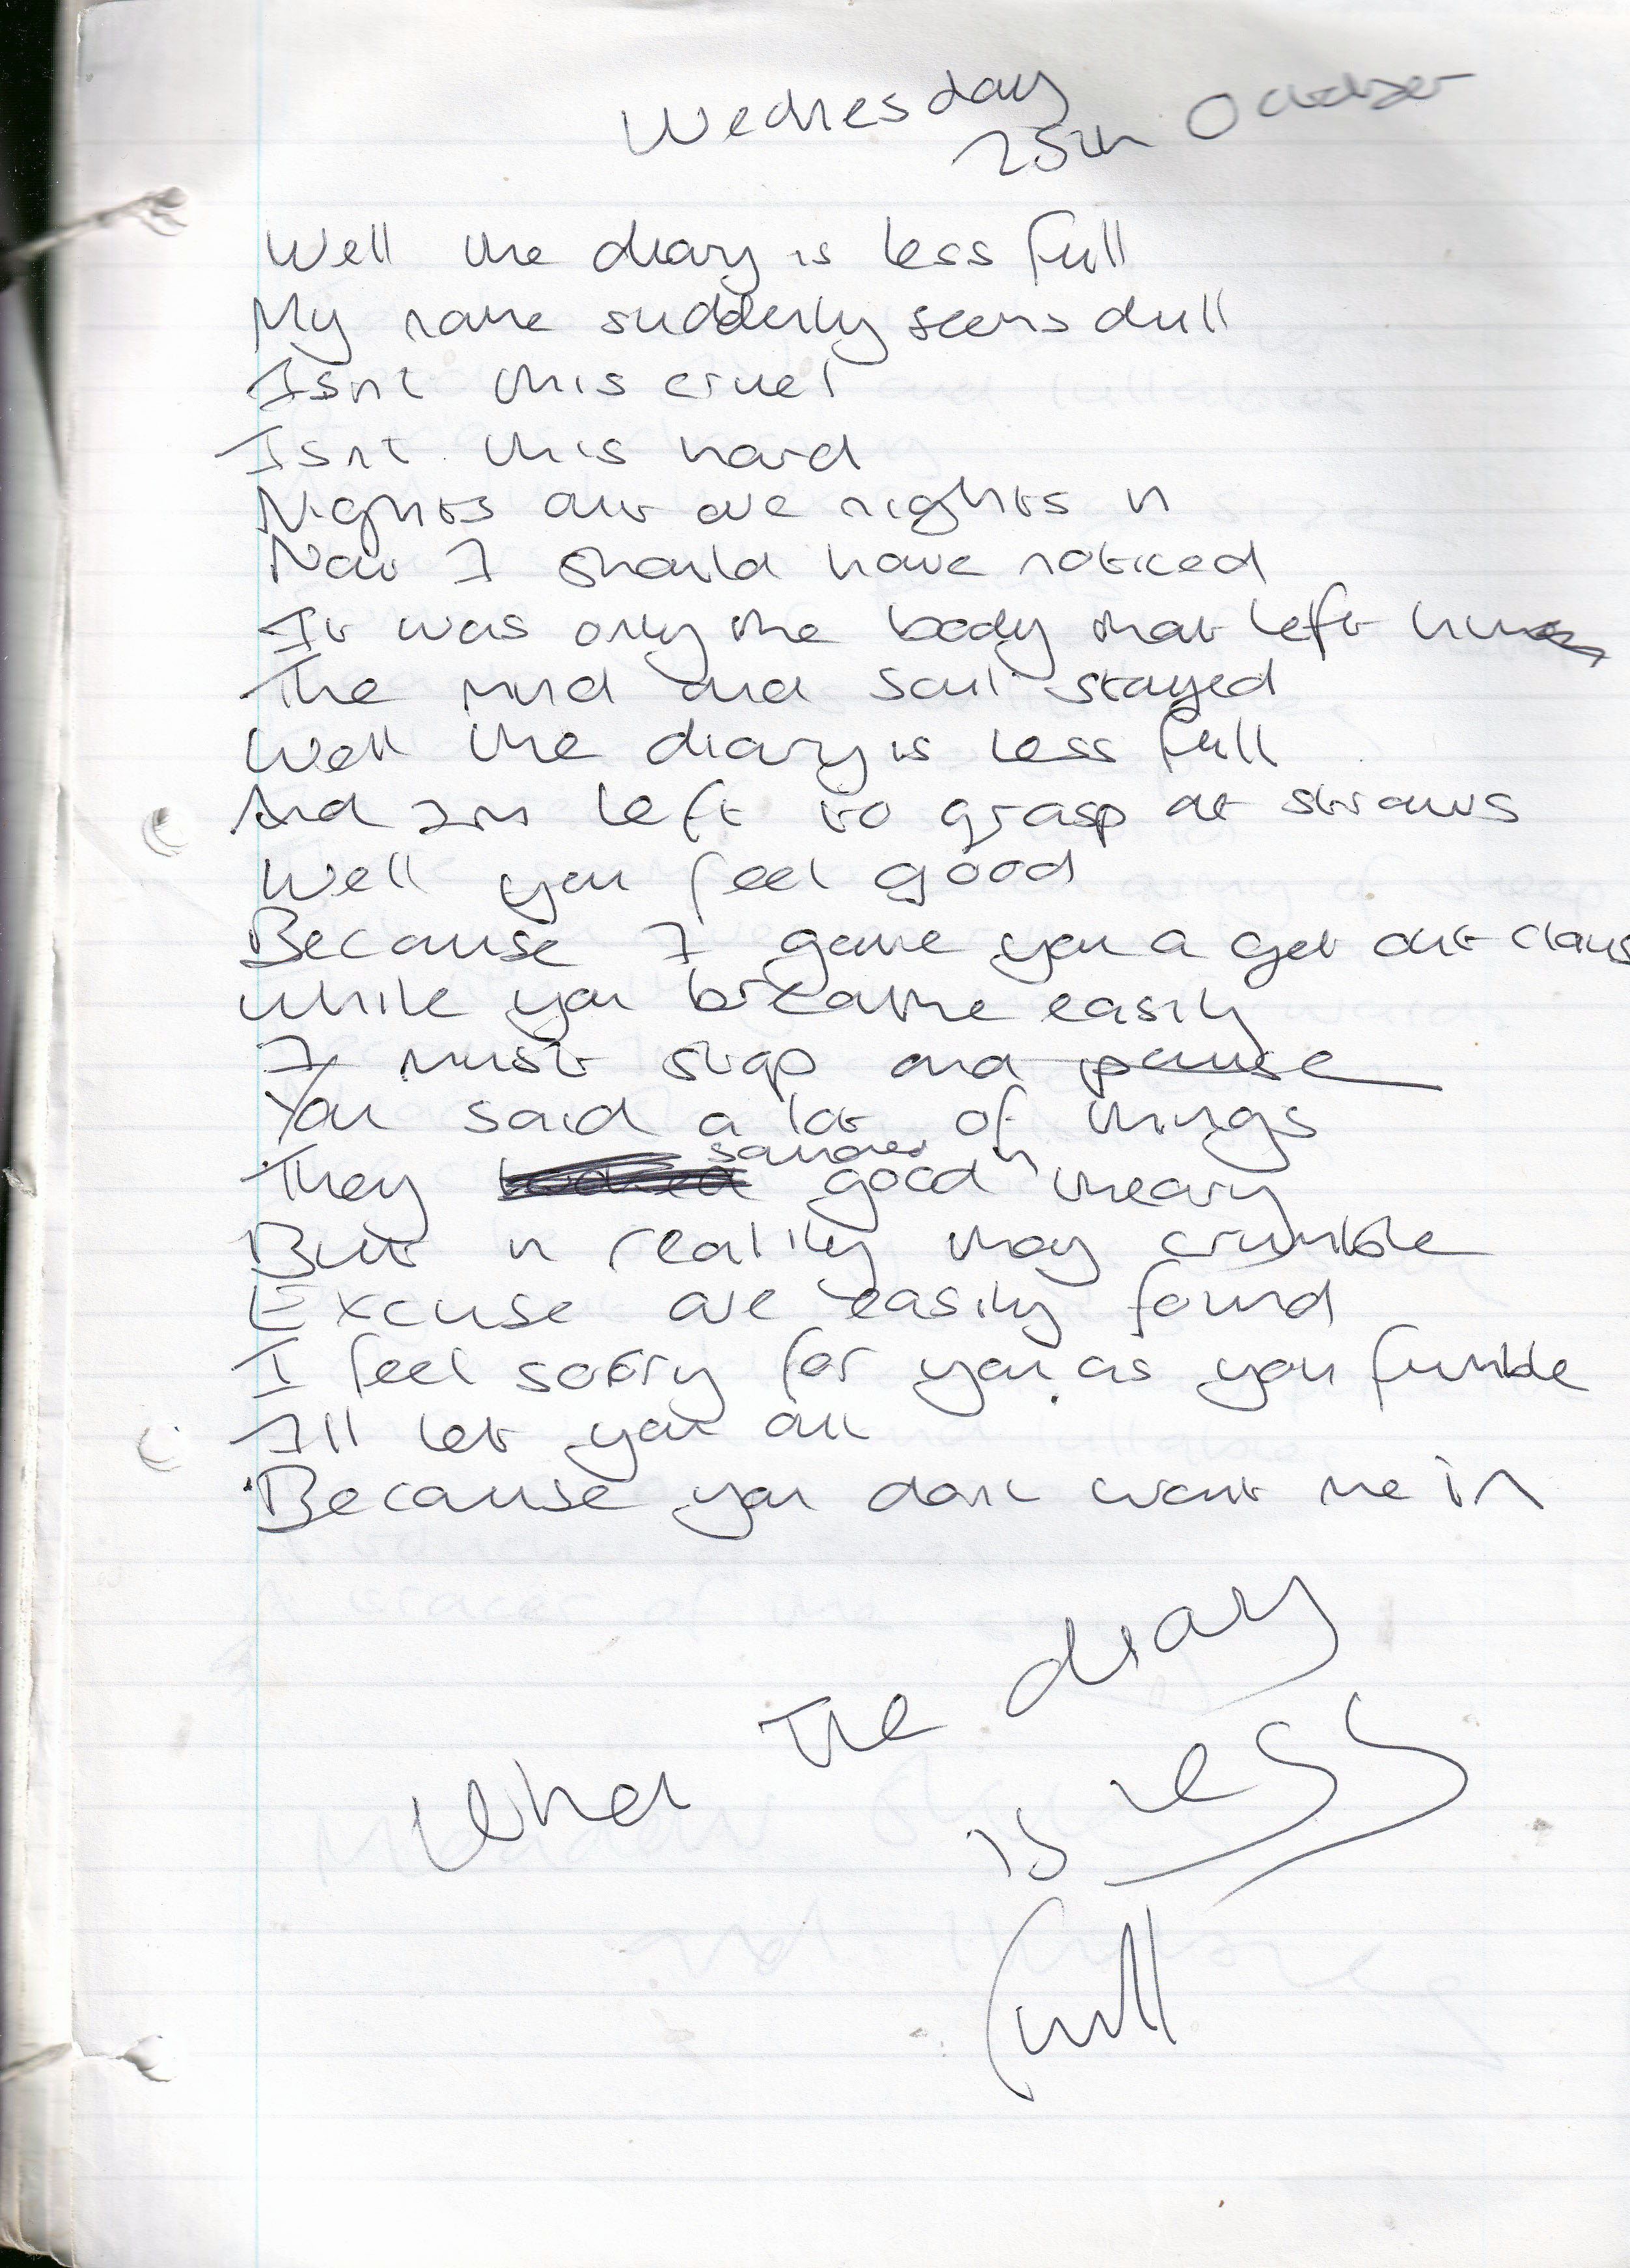 Wednesday
25th October
Well the diary is less full
My name suddenly seems dull
Isnt this cruel
Isnt this hard
Nights out are nights in
Now I should have noticed
It was only the body that left him
The mind and soul stayed
Well the diary is less full
And Im left to grasp at straws
Well you feel good
Because I gave you a get out claus
While you breathe easily
I must stop and pause
You said a lot of things
They sounded good in theory
But in reality they crumble
Excuse are easily found
I feel sorry for you as you fumble
Ill let you out
Because you dont want me in
When The diary
is less
full